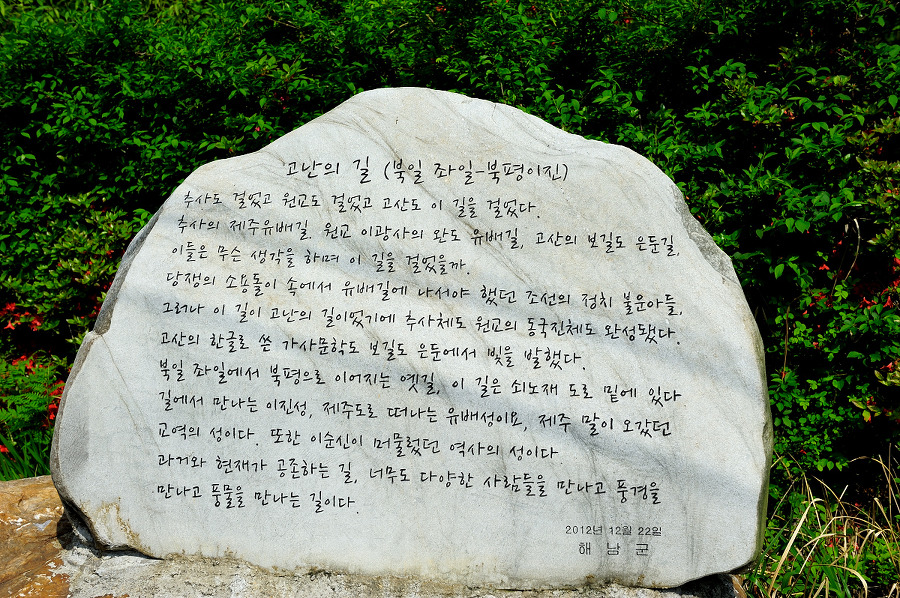 고난의 길 (북일 좌일-북평이진)
추사도 걸었고 원교도 걸었고 고산도 이 길을 걸었다.
추사의 제주유배길. 원교 이광사의 완도 유배길, 고산의 보길도 은둔길,
이들은 무슨 생각을 하며 이 길을 걸었을까.
당쟁의 소용돌이 속에서 유배길에 나서야 했던 조선의 정치 불운아들,
그러나 이 길이 고난의 길이었기에 추사체도 원교의 동국진체도 완성됐다.
고산의 한글로 쓴 가사문학도 보길도 은둔에서 빛을 발했다.
북일 좌일에서 북평으로 이어지는 옛길, 이 길은 쇠노재 도로 밑에 있다
길에서 만나는 이진성, 제주도로 떠나는 유배성이요, 제주 말이 오갔던
교역의 성이다. 또한 이순신이 머물렀던 역사의 성이다.
과거와 현재가 공존하는 길, 너무도 다양한 사람들을 만나고 풍경을
만나고 풍물을 만나는 길이다.
2012년 12월 22일
해 남 군